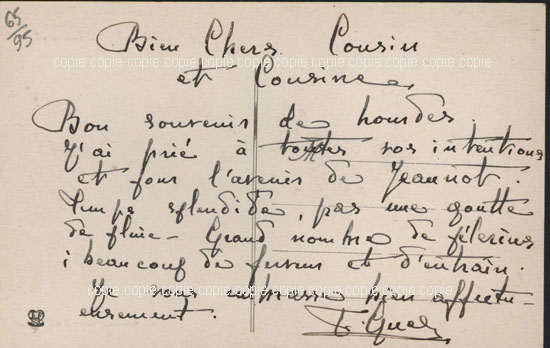 65/95
Bien Chers Cousin
et Cousine,
Bon souvenir de Lourdes.
J'ai prié à toutes vos intentions
et pour l'avenir de Jeannot.
Temps splendide, pas une goutte
de pluie - Grand nombre de pélerins
; beaucoup de ferveur et d'entrain.
Je vous embrasse bien affectu-
eusement.
copie copie copie copie copie copie copie copie copie copie copie copie